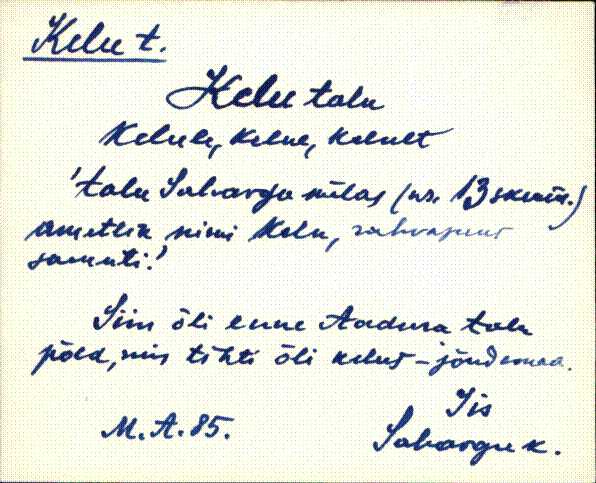 Kelu t.
Kelu talu
kelule, kelul, kelult
'talu Sahargu külas (nr. 13 skeem.)
ametlik nimi Kelu, rahvapärast
samuti.'
Siin õli enne Aadura talu
põld, mis tihti õli kelus – jõudemaa.
Iis
M. A. 85.
Sahargu k.